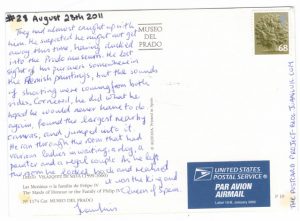 #28 August 28th 2011
They had almost caught up with
him. He suspected he might not get
away this time, having ducked
into the Prado museum. He lost
sight of his pursuers somewhere in
the Flemish paintings, but the sounds
of shouting were coming from both
sides. Cornered, he did what he
hoped he would never have to do
again, found the largest nearby
canvas, and jumped into it.
He ran through the room that had
various ladies in waiting, a dog, a
painter and a royal couple. As he left
the room he looked back and realised
it was the King and
Queen of Spain
MUSEO
DEL
PRADO
68
UNITED STATES
POSTAL SERVICE
PAR AVION
AIRMAIL
Label 19-B, January 2002
Las Meninas o la familia de Felipe IV
The Maids of Honour or the Family of Philip IV
Nº 1174 Cat. MUSEO DEL PRADO